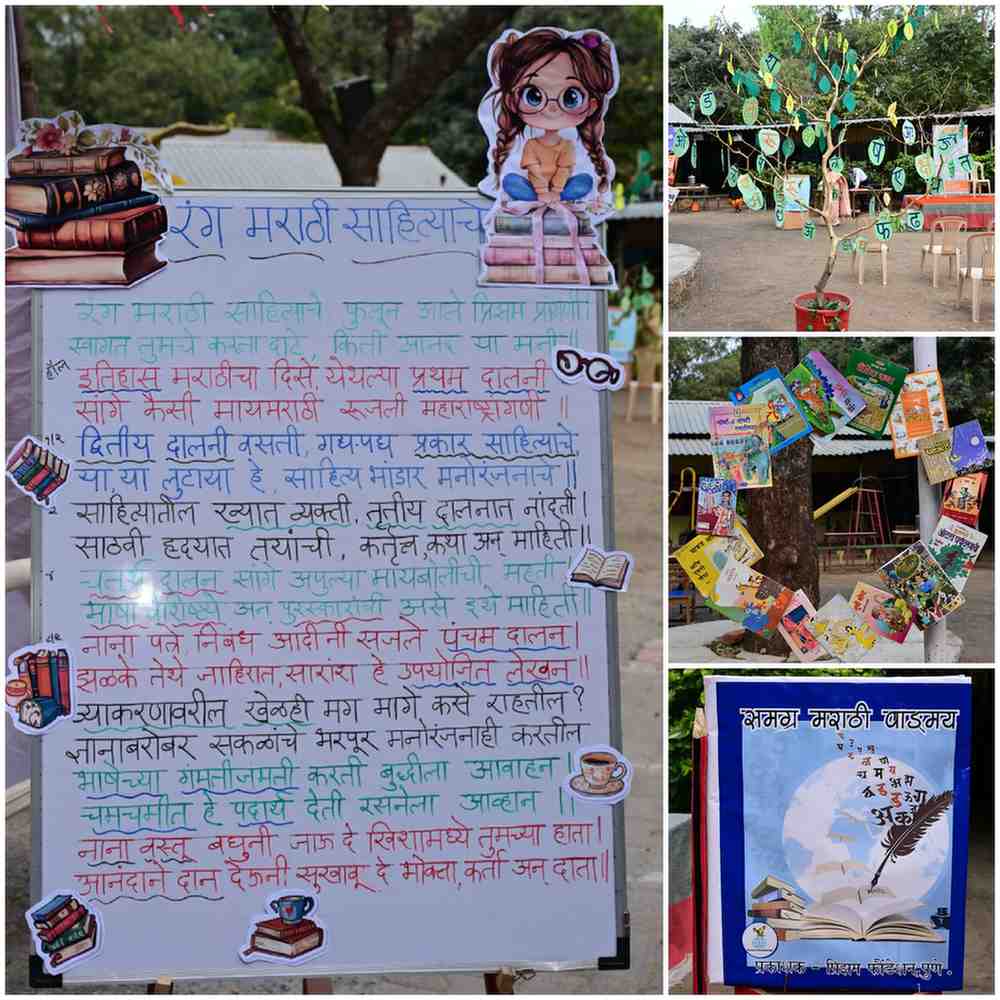 रंग मराठी साहित्याचे
रंग मराठी साहित्याचे फुलून आले प्रिझम प्रांगणी।
स्वागत तुमचे करता दाटे, किती आनंद या मनी॥
हॉल
इतिहास मराठीचा दिसे, येथल्या प्रथम दालनी
सांगे कैसी मायमराठी रूजली महाराष्ट्रांगणी ॥
द्वितीय दालनी वसती, गद्यपद्य प्रकार साहित्याचे
या, या लुटाया हे, साहित्य भांडार मनोरंजनाचे॥
साहित्यातील ख्यात व्यक्ती, तृतीय दालनात नांदती।
साठवी हृदयात तयांची, कर्तृत्व, कथा अन् माहिती॥
चतुर्थ दालन सांगे अपुल्या मायबोलीची महती
भाषा वैशिष्ट्ये अन् पुरस्कारांची असे इथे माहिती॥
नाना पत्रे, निबंध आदींनी सजले पंचम दालन।
झळके तेथे जाहिरात, सारांश हे उपयोजित लेखन॥
व्याकरणावरील खेळही मग मागे कसे राहतील?
ज्ञानाबरोबर सकळांचे भरपूर मनोरंजनाही करतील
भाषेच्या गमतीजमती करती बुद्धीला आवाहन।
चमचमीत हे पदार्थ देती रसनेला आव्हान ॥
नाना वस्तू बघुनी जाऊ दे खिशामध्ये तुमच्या हाता।
आनंदाने दान देऊनी सुखावू दे भोक्ता, कर्ता अन् दाता॥
ड
प
फ
ढ
त
समग्र मराठी वाङ्मय
प्रकाशक - प्रिझम फौंडेशन, पुणे.